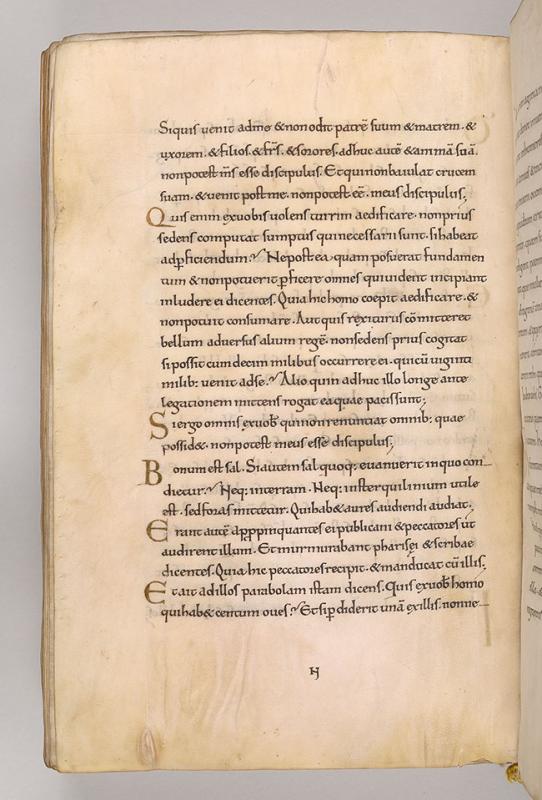 Siquis uenit adme & nonodit patrē suum & matrem. &
uxorem. & filios. & frs̄. & sorores. adhuc autē & animā suā.
nonpotest ms̄ esse discipulus. Et quinonbaiulat crucem
suam. & uenit post me. nonpotest eē. meus discipulus;
Quis enim exuobis uolens turrim aedificare. nonprius
sedens computat sumptus quinecessarii sunt. sihabeat
adpficiendum? Neposteaquam posuerat fundamen
tum & nonpotuerit pficere omnes quiuident incipiant
inludere ei dicentes. Quia hic homo coepit aedificare. &
nonpotuit consumare. Aut quis rex iturus cōmittere
bellum aduersus alium regē. nonsedens prius cogitat
sipossit cum decim milibus occurrere ei. quicū uiginti
milib: uenit adse? Alio quin adhuc illo longe ante
legationem mittens rogat ea quae pacis sunt;
Si ergo omnis exuob quinonrenuntiat omnib: quae
possid&. nonpotest meus esse discipulus;
Bonum est sal. Si autem sal quoq; euanuerit inquo con
dietur? Neq: interram. Neq: insterquilinium utile
est. sed foras mittetur. Quihab& aures audiendi audiat;
Erant autē appropinquantes ei publicani & peccatores ut
audirent illum. Et murmurabant pharisęi & scribae
dicentes. Quia hic peccatores recipit. & manducat cū illis;
Et ait ad illos parabolam istam dicens. Quis exuob homo
quihab& centum oues? Et si pdiderit unā exillis. nonne
N